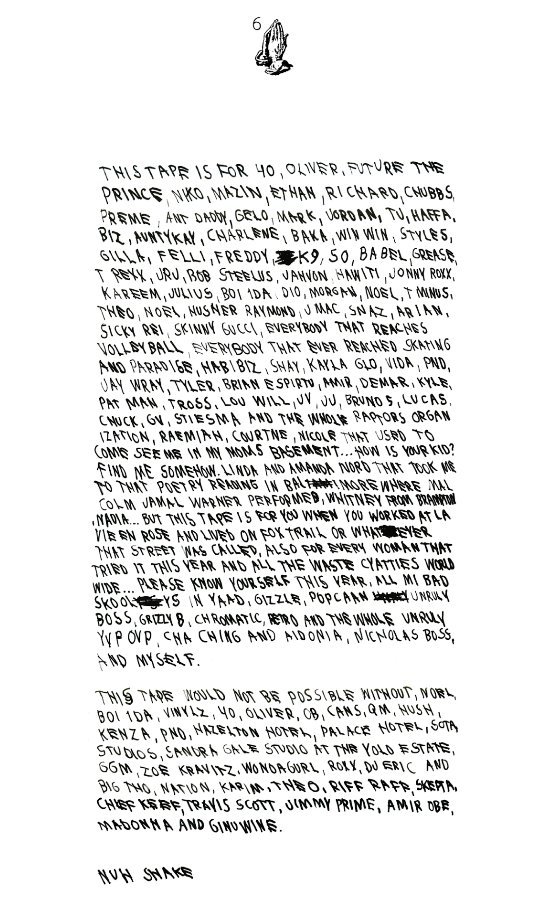 6
THIS TAPE IS FOR 40, OLIVER, FUTURE THE
PRINCE, NIKO, MAZIN, ETHAN, RICHARD, CHUBBS,
PREME, ANT DADDY, GELO, MARK, JORDAN, TJ, HAFFA,
BIZ, AUNTYKAY, CHARLENE, BAKA, WIN WIN, STYLES,
GILLA, FELLI, FREDDY, K9, SO, BABEL, GREASE,
T REXX, JRU, ROB STEELUS, JAHVON, HAWITI, JONNY ROXX,
KAREEM, JULIUS, BOI 1DA, DIO, MORGAN, NOEL, T MINUS,
THEO, NOEL, HUSHER RAYMOND, J MAC, SNAZ, ARIAN,
SICKY REI, SKINNY GUCCI, EVERYBODY THAT REACHES
VOLLEYBALL, EVERYBODY THAT EVER REACHED SKATING
AND PARADISE, HABIBIZ, SHAY, KAYLA GLO, VIDA, PND,
JAY WRAY, TYLER, BRIAN ESPIRTU, AMIR, DEMAR, KYLE,
PAT MAN, TROSS, LOU WILL, JV, JJ, BRUNO S, LUCAS,
CHUCK, GV, STIESMA AND THE WHOLE RAPTORS ORGAN
IZATION, RAEMIAH, COURTNE, NICOLE THAT USED TO
COME SEE ME IN MY MOMS BASEMENT...HOW IS YOUR KID?
FIND ME SOMEHOW. LINDA AND AMANDA NORD THAT TOOK ME
TO THAT POETRY READING IN BALTIMORE WHERE MAL
COLM JAMAL WARNER PERFORMED, WHITNEY FROM BRAMPTON
, NADIA... BUT THIS TAPE IS FOR YOU WHEN YOU WORKED AT LA
VIE EN ROSE AND LIVED ON FOXTRAIL OR WHATEVER
THAT STREET WAS CALLED, ALSO FOR EVERY WOMAN THAT
TRIED IT THIS YEAR AND ALL THE WASTE CYATTIES WORLD
WIDE... PLEASE KNOW YOURSELF THIS YEAR, ALL MI BAD
SKOOL YS IN YAAD, GIZZLE, POPCAAN UNRULY
BOSS, GRIZZLY B, CHROMATIC, RETRO AND THE WHOLE UNRULY
YVP OVP, CHA CHING AND AIDONIA, NICHOLAS BOSS,
AND MYSELF.
THIS TAPE WOULD NOT BE POSSIBLE WITHOUT, NOEL,
BOI 1DA, VINYLZ, 40, OLIVER, CB, CANS, QM, HUSH,
KENZA, PND, HAZELTON HOTEL, PALACE HOTEL, SOTA
STUDIOS, SANDRA GALE STUDIO AT THE YOLO ESTATE,
GGM, ZOE KRAVITZ, WONDAGURL, ROXX, DJ ERIC AND
BIG THO, NATION, KARIM, THEO, RIFF RAFF, SKEPTA,
CHIEF KEEF, TRAVIS SCOTT, JIMMY PRIME, AMIR OBE,
MADONNA AND GINUWINE.
NUH SHAKE